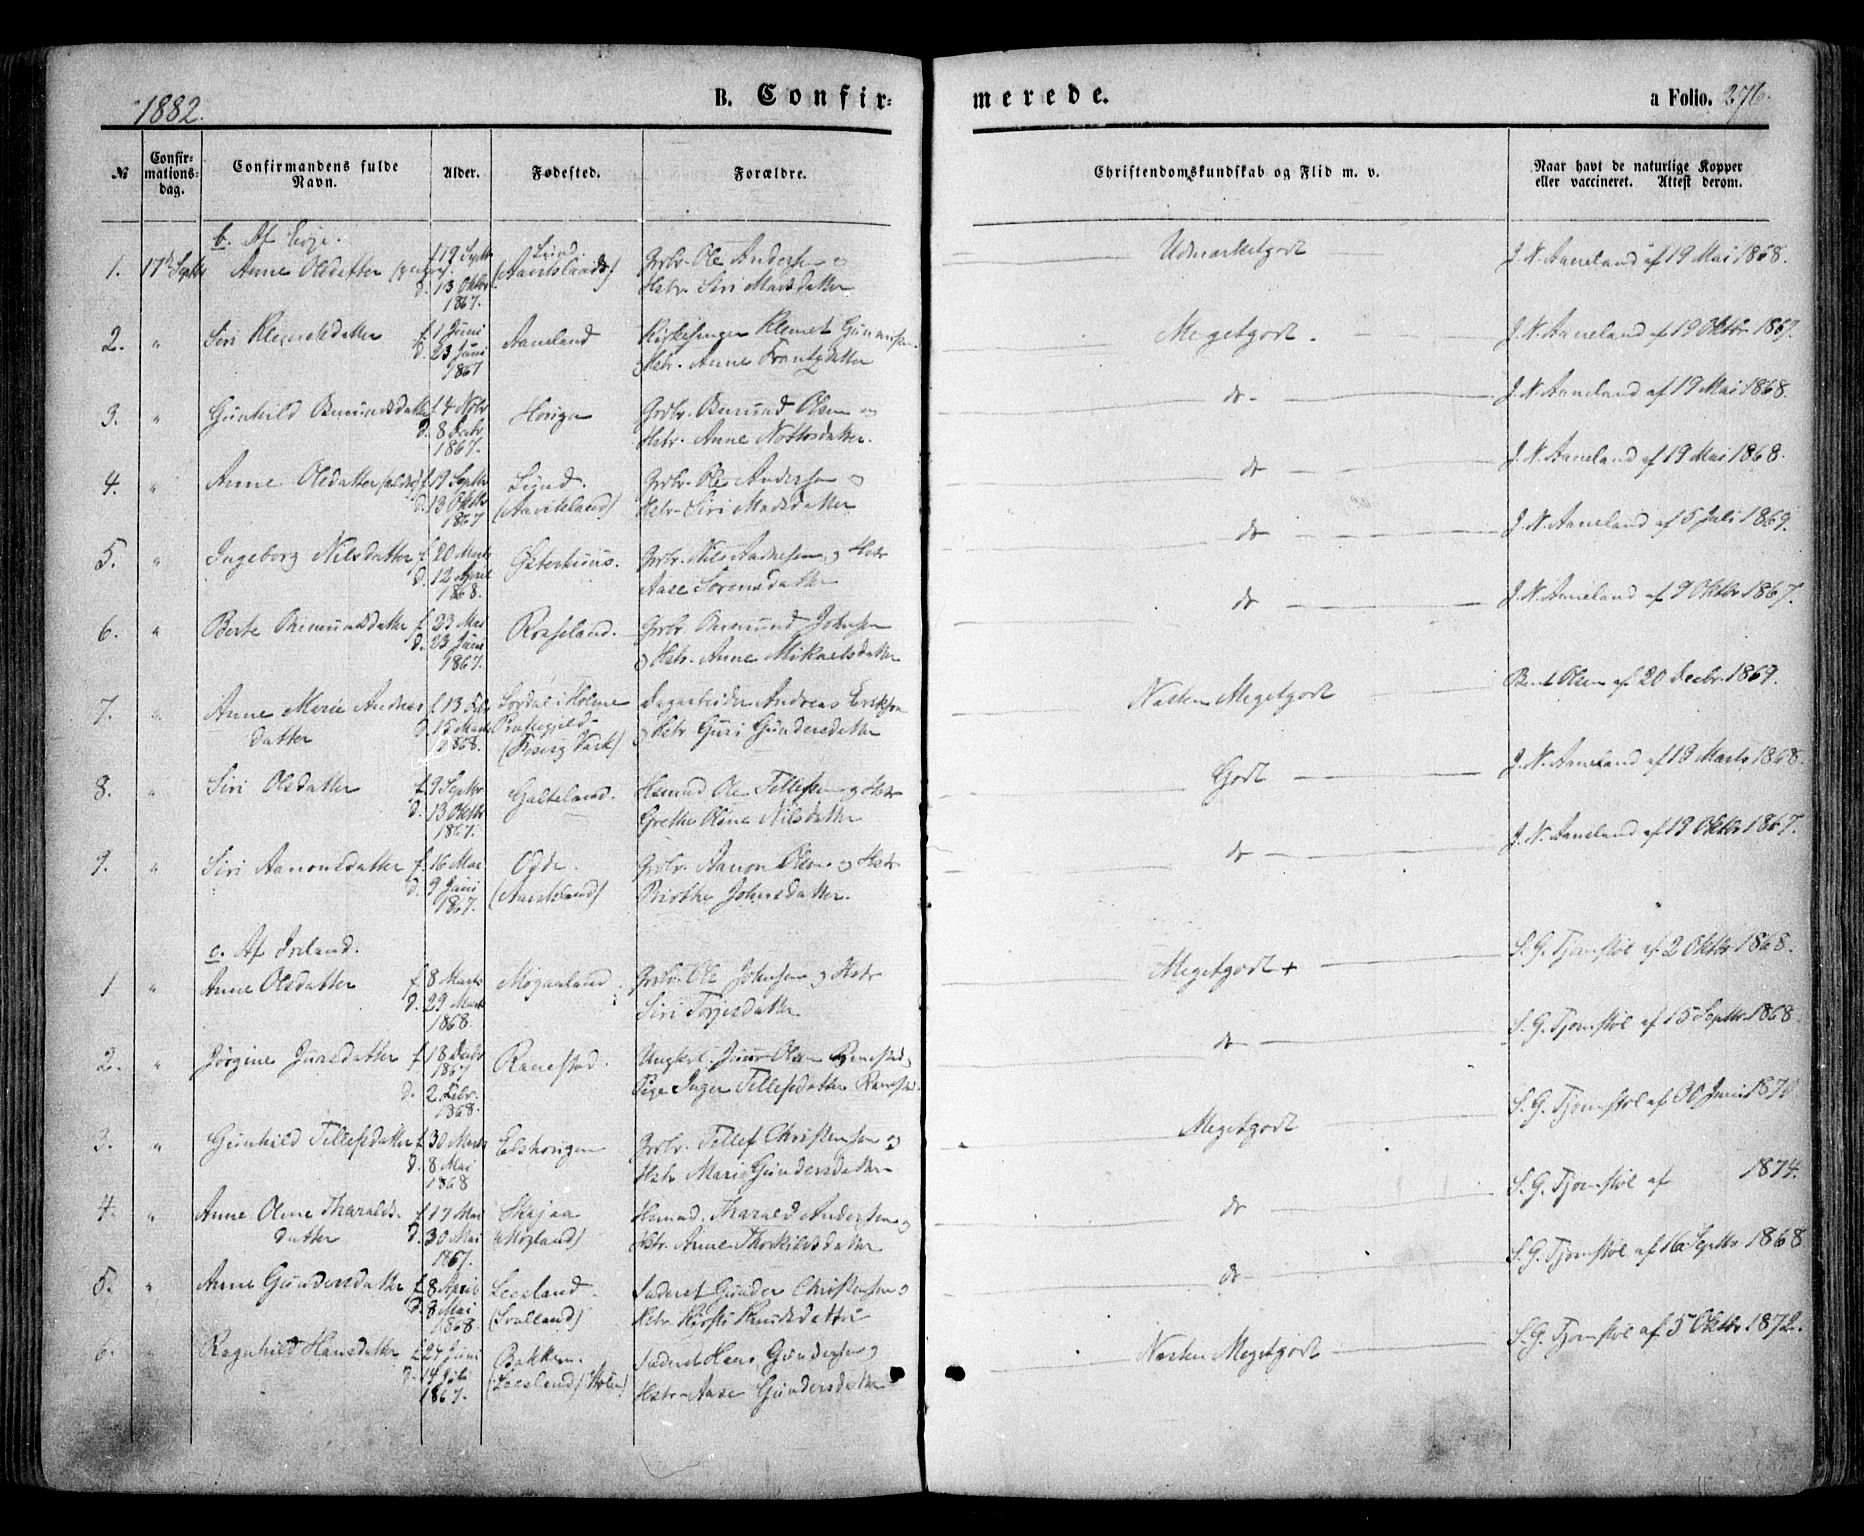 1882.
B. Confir-
merede.
a Folio. 276.
№
Confir-
mations-
dag.
Confirmandens fulde
Navn.
Alder.
Fødested.
Forældre.
Christendomskundskab og Flid m. v.
Naar havt de naturlige Kopper
eller vaccineret. Attest derom.
b. Af Evje.
1. 17de Septbr Anne Olsdatter f. 19 Septbr Grbr. Ole Andersen og Udmærketgodt J. N. Aaneland af 19 Mai 1868.
d. 13 Oktbr Hstr. Siri Madsdatter
1867.
2. " Siri Klemetsdatter f. 1 Juni Aaneland Kirkesanger Klemet Gunnarsen Megetgodt. J. N. Aaneland af 19 Oktbr 1867.
d. 23 Juni og Hstr. Anne Frantzdatter
1867
3. " Gunhild Osmundsdatter f. 4 Novbr Horigen Grbr. Osmund Olsen og do J. N. Aaneland af 19 Mai 1868.
d. 8 Decbr Hstr. Anne
1867.
4. " Anne Olsdatter f. 19 Septbr Lund Grbr. Ole Andersen og do J. N. Aaneland af 19 Mai 1868.
d. 13 Oktbr Hstr. Siri Madsdatter
1867
5. " Ingeborg Nilsdatter f. 20 Marts Østerhuus. Grbr. Nils og Hstr do J. N. Aaneland af 5 Juli 1869.
d. 12 April Aase Sørensdatter
1868.
6. " Berte Osmundsdatter f. 23 Mai Grbr. Osmund Johnsen do J. N. Aaneland af 9 Oktbr 1867.
d. 23 Juni og Hstr. Anne Mikaelsdatter
1867.
7. " Anne Marie Andreas f. 13 Febr. i Holme Dagarbeider Andreas Eriksen Næsten Megetgodt Bent Olsen af 20 Decbr 1869.
datter d. 15 Marts og Hstr Guri Gundersdatter
1868.
8. " Siri Olsdatter f. 9 Septbr Galteland. Husmd Ole Tellefsen og Hstr Godt J. N. Aaneland af 19 Marts 1868.
d. 13 Oktbr Grethe Oline Nilsdatter
1867.
9. " Siri Aanonsdatter f. 16 Mai Odde. Grbr. Aanon Olsen og Hstr do J. N. Aaneland af 19 Oktbr 1867.
d. 9 Juni Birthe Johnsdatter.
1867.
c. Af Iveland.
1 " Anne Olsdatter f. 8 Marts Grbr. Ole Johnsen og Hstr Megetgodt + S. G. Tjomstøl af 2 Oktbr 1868.
d. 29 Marts Siri Torjesdatter
1868
2. " Jørgine Juuls­datter f. 18 Decbr Ranestad. Ungkrl. Juul Olsen Ranestad og do S. G. Tjomstøl af 15 Septbr 1868
1867
d. 2 Febr. Pige Inger Tellefsdatter Ranestad
1868.
3. " Gunhild Tellefsdatter f. 30 Marts Grbr. Tellef Christensen og Megetgodt S. G. Tjomstøl af 30 Juni 1870
d. 8 Mai Hstr Marie Gundersdatter
1868
4. " Anne Oline Tharalds- f. 17 Mai Skajaa Husmd. Tharald Andersen og do S. G. Tjomstøl af 1874.
datter d. 30 Mai (Mogland) Hstr. Anne Thorkildsdatter
1867.
5. " Anne Gundersdatter f. 8 April Leesland Inderst Gunder Christensen og do S. G. Tjomstøl af 16 Septbr 1868
d. 8 Mai Hstr. Kirsti Knudsdatter
1868.
6. " Ragnhild Hansdatter f. 24 Juni Bakken Inderst Hans Gundersen og Næsten Megetgodt S. G. Tjomstøl af 5 Oktbr 1872.
d. 14 Juli (Leesland Hstr. Aase Gundersdatter
1867.